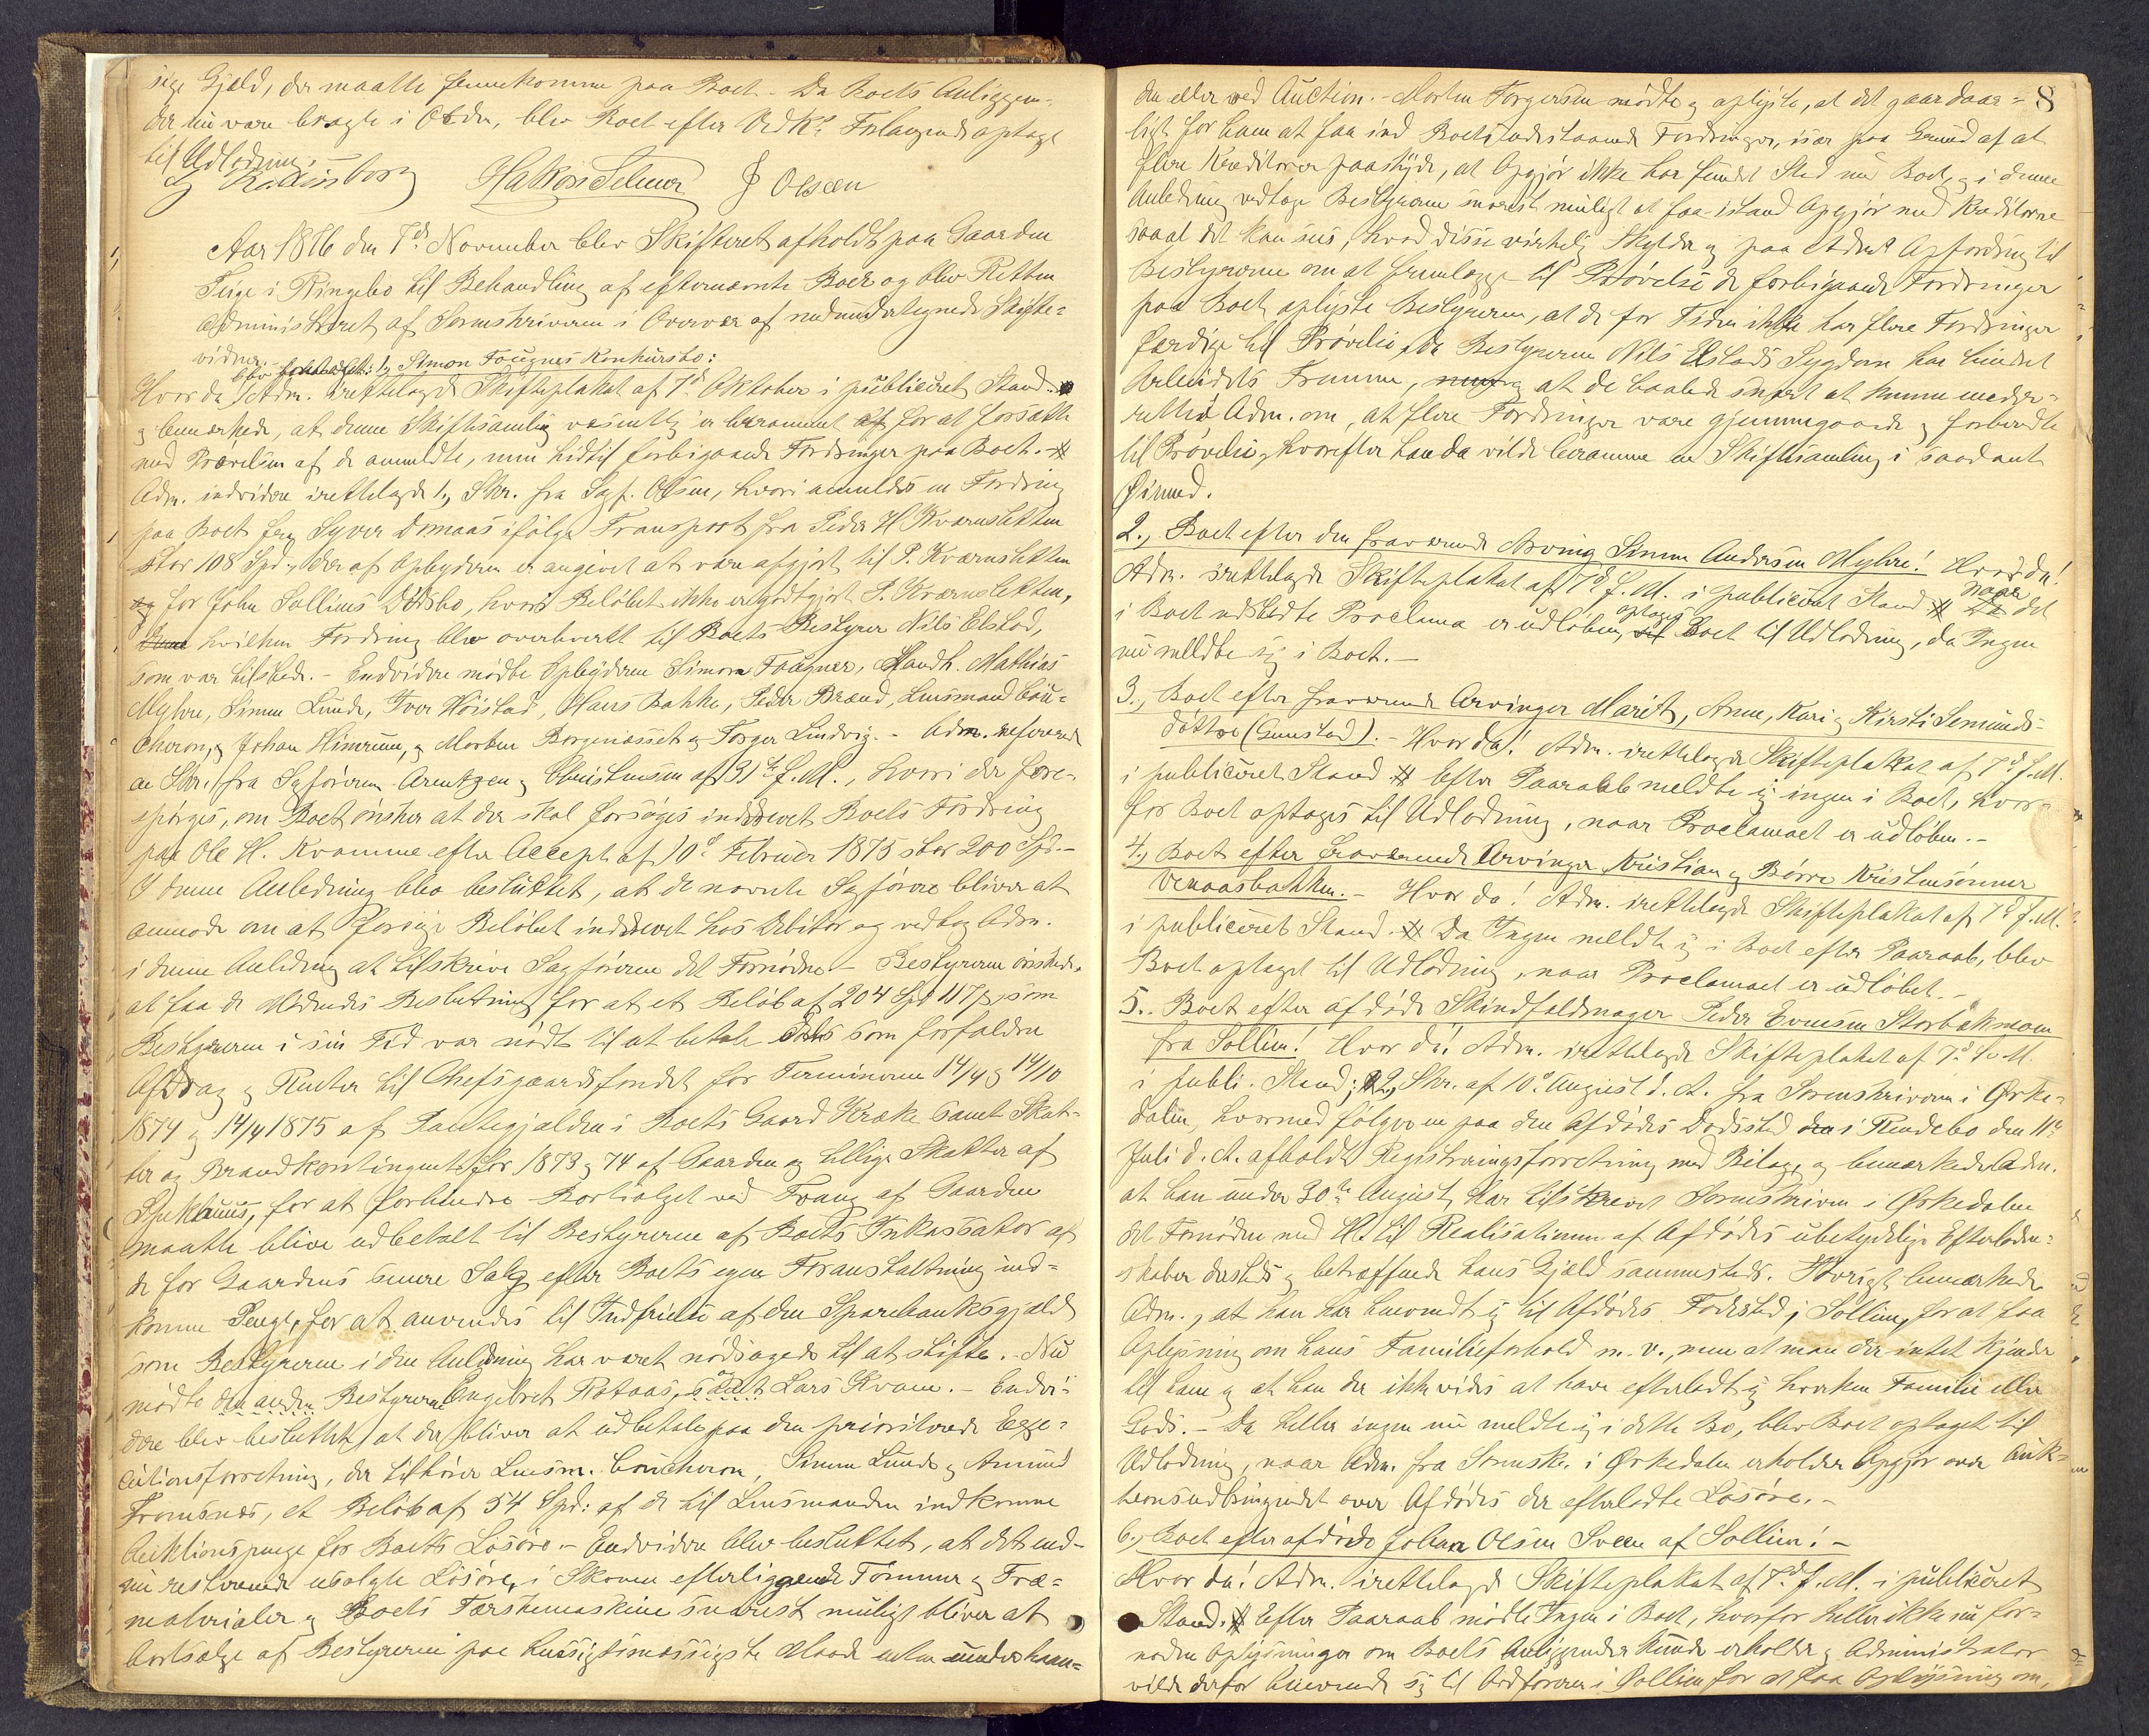 sige Gjæld, der maatte fremkomme paa Boet. – Da Boets Anliggen-
der nu vare bragte i Orden, blev Boet efter Vedk. Forlangende optaget
til Udlodning.
Hakon Selmer J Olsen
Aar 1876 den 7de November blev Skifteret afholdt paa Gaarden
Fuge i Ringebo til Behandling af efternævnte Boer og blev Retten
administreret af Sorenskriveren i Overvær af nedenundertegnede Skifte-
vidner.
1, Simon Fougners Konkursbo:
Hvor da Adm. irettelagde Skifteplakat af 7de Oktober i publiceret Stand
og bemærkede, at denne Skiftesamling væsentlig er berammet for at forsætte
med Prøvelsen af de anmeldte, men hidtil forbigaaede Fordringer paa Boet.
Adm. indvidere irettelagde 1, Skr. fra Sagf. Olsen, hvori anmeldes en Fordring
paa Boet fra Syver Dømaas ifølge Transport fra Peder H Kvarnsletten
stor 108 Spd., der af Opbyderen er angivet at være afgjort til P. Kvarnsletten
for John Solliens Dødsbo, hvori Beløbet ikke er godtgjort P. Kvarnsletten,
hvilken Fordring blev overleveret til Boets Bestyrer Nils Elstad,
som var tilstede. – Endvidere mødte Opbyderen Simon Fougner, Landh. Mathias
Myhre, Simen Lunde, Iver Høistad, Hans Bakke, Peder Brænd, Lensmand Cou-
cheron, og Johan Himrum, og Morten Borgenasset og Torger Lindvig. – Adm. refererede
en Skr. fra Sagførerne Arentzen og Christensen af 31te f. M., hvori der fore-
spørges, om Boet ønsker at der skal forsøges inddrevet Boets Fordring
paa Ole H. Kvamme efter Accept af 10de Februar 1875 stor 200 Spd. –
I denne Anledning blev besluttet, at de nævnte Sagførere bliver at
anmode om at forsøge Beløbet inddrevet hos Debitor og vedtog Adm.
i denne Anledning at tilskrive Sagførerne det Fornødne. – Bestyrerne ønskede
at faa de Mødendes Beslutning for at et Beløb af 204 Spd 117 s, som
Bestyrerne i sin Tid var nødt til at betale som forfaldne
Afdrag og Renter til Oplysningsfondet for Terminerne 14/4 og 14/10
1874 og 14/4 1875 af Pantegjælden i Boets Gaard Kræke samt Skat-
ter og Brandkontingent for 1873 og 74 af Gaarden og tillige Skatter af
for at forhindre Bortsalget ved Tvang af Gaarden
maatte blive udbetalt til Bestyrerne af Boets Inkassator af
de for Gaardens senere Salg efter Boets egen Foranstaltning ind-
komne Penge, for at anvendes til Indfrielse af den Sparebanksgjæld
som Bestyrerne i den Anledning har været nødsagede til at stifte. – Nu
mødte den anden Bestyrer Engebret Rotaas, samt Lars Kvam. – Endvi-
dere blev besluttet, at der bliver at udbetale paa den prioriterede Exe-
cutionsforretning, der tilhører Lensm. Coucheron, Simen Lunde og Amund
Tromsnes, et Beløb af 54 Spd: af de til Lensmanden indkomne
Auktionspenge for Boets Løsøre. – Endvidere blev besluttet, at det end-
nu resterende usolgte Løsøre, i Skoven efterliggende Tømmer og Træ-
materialer og Boets Tærskemaskine snarest muligt bliver at
bortsælge af Bestyrerne paa hensigtsmæssigste Maade enten underhaan-
8
den eller ved Auction. – Morten Torgersen mødte og oplyste, at det gaar daar-
ligt for ham at faa ind Boets udestaaende Fordringer, især paa Grund af at
flere Kreditorer paaskyde, at Opgjør ikke har fundet Sted med Boet, og i denne
Anledning vedtoge Bestyrerne snarest muligt at faa istand Opgjør med Kreditorerne
saa at det kan sees, hvad disse virkelig skylder og paa Adms Opfordring til
Bestyrerne om at fremlægge til Prøvelse de forbigaaede Fordringer
paa Boet oplyste Bestyrerne, at de for Tiden ikke har flere Fordringer
færdige til Prøvelse, da Bestyreren Nils Elstads Sygdom har hindret
Arbeidets Fremme, at de haabede snart at kunne under-
rette Adm. om, at flere Fordringer vare gjennemgaaede og forberedte
til Prøvelse, hvorefter han da vilde beramme en Skiftesamling i saadant
Øiemed.
2., Boet efter den fraværende Arving Simen Andersen Myhre! Hvor da!
Adm. irettelagde Skifteplakat af 7de f. M. i publiceret Stand naar det
i Boet udstedte Proclama er udløben, optages Boet til Udlodning, da Ingen
nu meldte sig i Boet. –
3., Boet efter fraværende Arvinger Marit, Anne, Kari og Kirsti Semunds-
døttre (Gunstad). – Hvor da! Adm. irettelagde Skifteplakat af 7de f. M.
i publiceret Stand. Efter Paaraab meldte sig ingen i Boet, hvor-
for Boet optages til Udlodning, naar Proclamaet er udløben. –
4., Boet efter fraværende Arvinger Kristian og Børre Kristensønner
Venaasbakken. – Hvor da! Adm. irettelagde Skifteplakat af 7de f. M.
i publiceret Stand. Da Ingen meldte sig i Boet efter Paaraab, blev
Boet optaget til Udlodning, naar Proclamaet er udløbet. –
5. Boet efter afdøde Skindfeldmager Peder Evensen Storbækmoen
fra Sollien! Hvor da! Adm. irettelagde Skifteplakat af 7de f. M.
i publi. Stand; 2, Skr. af 10de August d. A. fra Sorenskriveren i Ørke-
dalen, hvormed følger en paa den Afdødes Dødssted i Rendebo den 11te
Juli d. A. afholdt Registreringsforretning med Bilage, og bemærkede Adm.
at han under 30te August har tilskrevet Sorenskriveren i Ørkedalen
det Fornødne med H. til Realisationen af Afdødes ubetydelige Efterladen-
skaber dersteds og betræffende hans Gjæld sammesteds. Iøvrigt bemærkede
Adm., at han har henvendt sig til Afdødes Fødested, Sollien, for at faa
Oplysning om hans Familieforhold m. v., men at man der intet kjender
til ham og at han der ikke vides at have efterladt sig hverken Familie eller
Gods. – Da heller ingen nu meldte sig i dette Bo, blev Boet optaget til
Udlodning, naar Adm. fra Sorensk. i Ørkedalen erholder Opgjør over Auk-
tionsudbringendet over Afdødes der efterladte Løsøre. –
6., Boet efter afdøde Johan Olsen Sveen af Sollien! –
Hvor da! Adm. irettelagde Skifteplakat af 7de f. M. i publiceret
Stand. Efter Paaraab mødte Ingen i Boet, hvorfor heller ikke nu for-
nødne Oplysninger om Boets Anliggender kunde erholdes og Administrator
vilde derfor henvende sig til Ordføreren i Sollien for at faa Oplysning om,